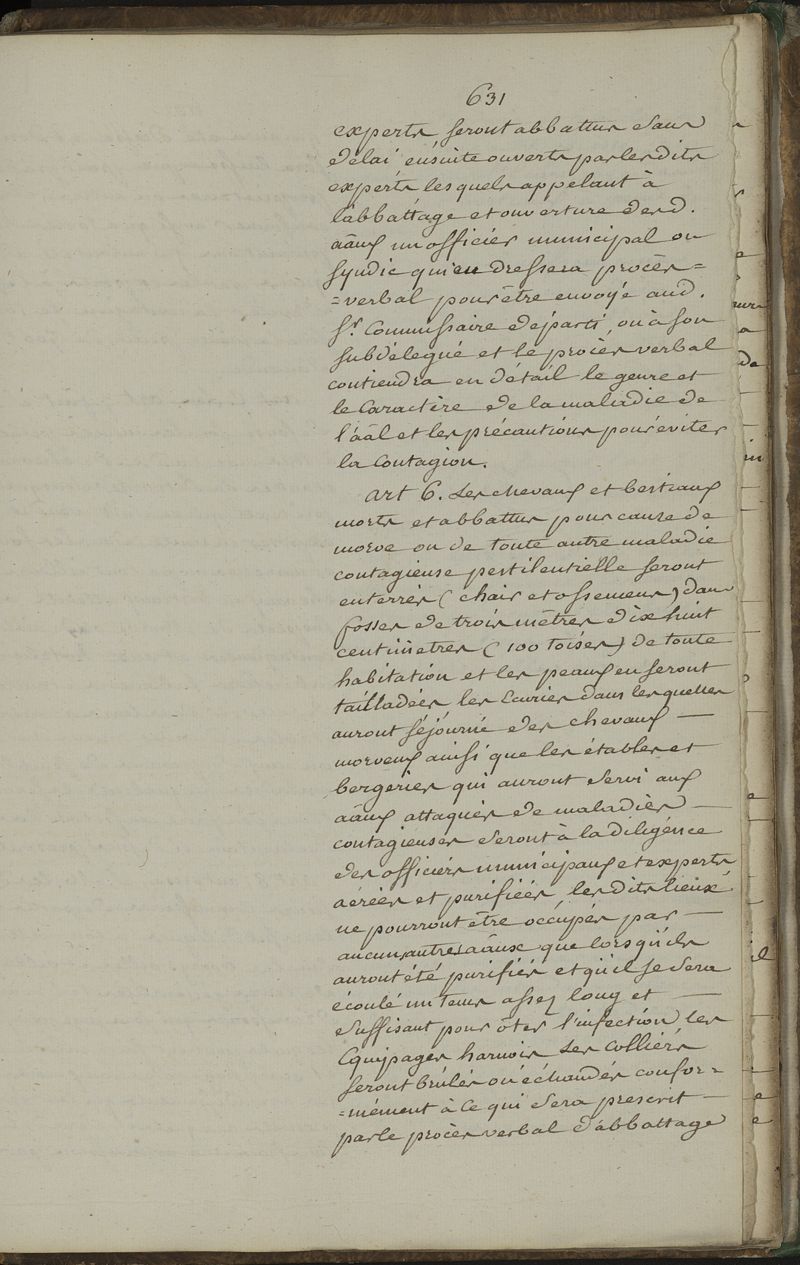 631
experts seront abbattus sans
délai ensuite ouverts par les dits
experts lesquels appelant à
l'abbattage et ouverture desd.
aãux un officier municipal ou
syndic qui en dressera procès=
=verbal pour être envoyé aud.
Sr. Commissaire départi, ou à son
subdélegué et le procès verbal
contiendra en détail le genre et
le caractère de la maladie de
l'aãl et les précautions pour éviter
la contagion.
art 6. Les chevaux et bestiaux
morts et abbattus pour cause de
morve ou de toute autre maladie
contagieuse pestilentielle seront
enterrés (chair et ossemens) dans
fosses de trois mètres dix huit
centimetres (100 toises) de toute
habitation et les peaux en seront
tailladées les Ecuries dans lesquelles
auront séjourné des chevaux —
morveux ainsi que les étables et
bergeries qui auront servi aux
aãux attaqués de maladies —
contagieuses seront à la diligence
des officiers municipaux et experts
aérées et purifiées, les dits lieux
ne pourront être occupés par —
aucuns autres aãux que lorsqu'ils
auront été purifiés et qu'il se sera
écoulé un tems assez long et —
suffisant pour ôter l'infection, les
Equipages harnois Les Colliers
seront brulés ou échaudés confor=
=mément à ce qui sera prescrit —
par le procès verbal d'abbattage